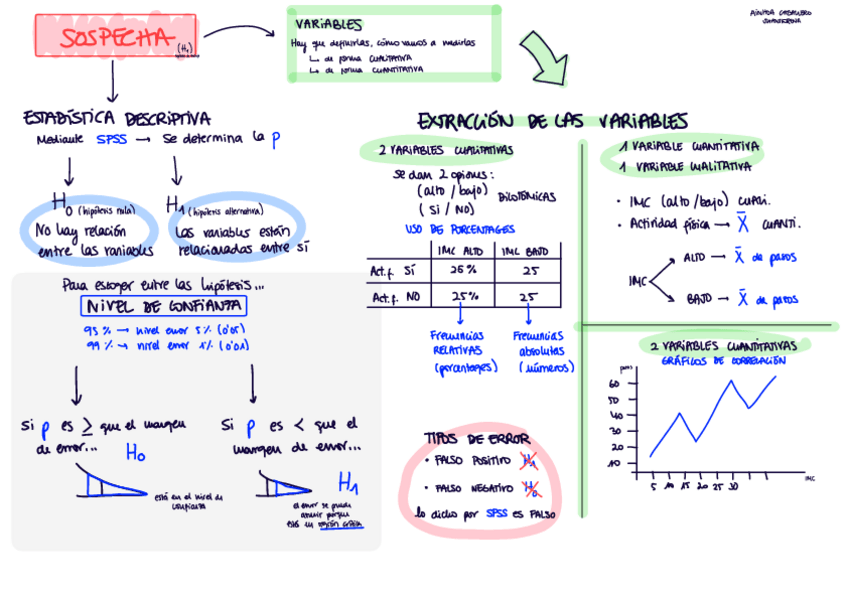 SOSPECHA
(H₀)
VARIABLES
Hay que definirlas, cómo vamos a medirlas
↳ de forma CUALITATIVA
↳ de forma CUANTITATIVA
ESTADÍSTICA DESCRIPTIVA
Mediante SPSS → Se determina la p
H₀ (hipótesis nula)
No hay relación
entre las variables
H₁ (hipótesis alternativa)
Las variables están
relacionadas entre sí
Para escoger entre las hipótesis...
NIVEL DE CONFIANZA
95 % → nivel error 5 % (0'05)
99 % → nivel error 1 % (0'01)
Si p es ≥ que el margen
de error... H₀
está en el nivel de
confianza
Si p es < que el
margen de error...
H₁
el error se puede
asumir porque
está en región crítica
EXTRACCIÓN DE LAS VARIABLES
2 VARIABLES CUALITATIVAS
Se dan 2 opciones:
(alto / bajo)
(Si / NO)
DICOTÓMICAS
USO DE PORCENTAGES
IMC ALTO IMC BAJO
Act.f. SÍ 25% 25
Act.f. NO 25% 25
Frecuencias
RELATIVAS
(porcentages)
Frecuencias
absolutas
(números)
TIPOS DE ERROR
• FALSO POSITIVO H₁
• FALSO NEGATIVO H₀
lo dicho por SPSS ES FALSO
1 VARIABLE CUANTITATIVA
1 VARIABLE CUALITATIVA
• IMC (alto / bajo) CUALI.
• Actividad física → X̄ CUANTI.
IMC
ALTO → X̄ de pasos
BAJO → X̄ de pasos
2 VARIABLES CUANTITATIVAS
GRÁFICOS DE CORRELACIÓN
pasos
60
50
40
30
20
10
5 10 15 20 25 30
IMC